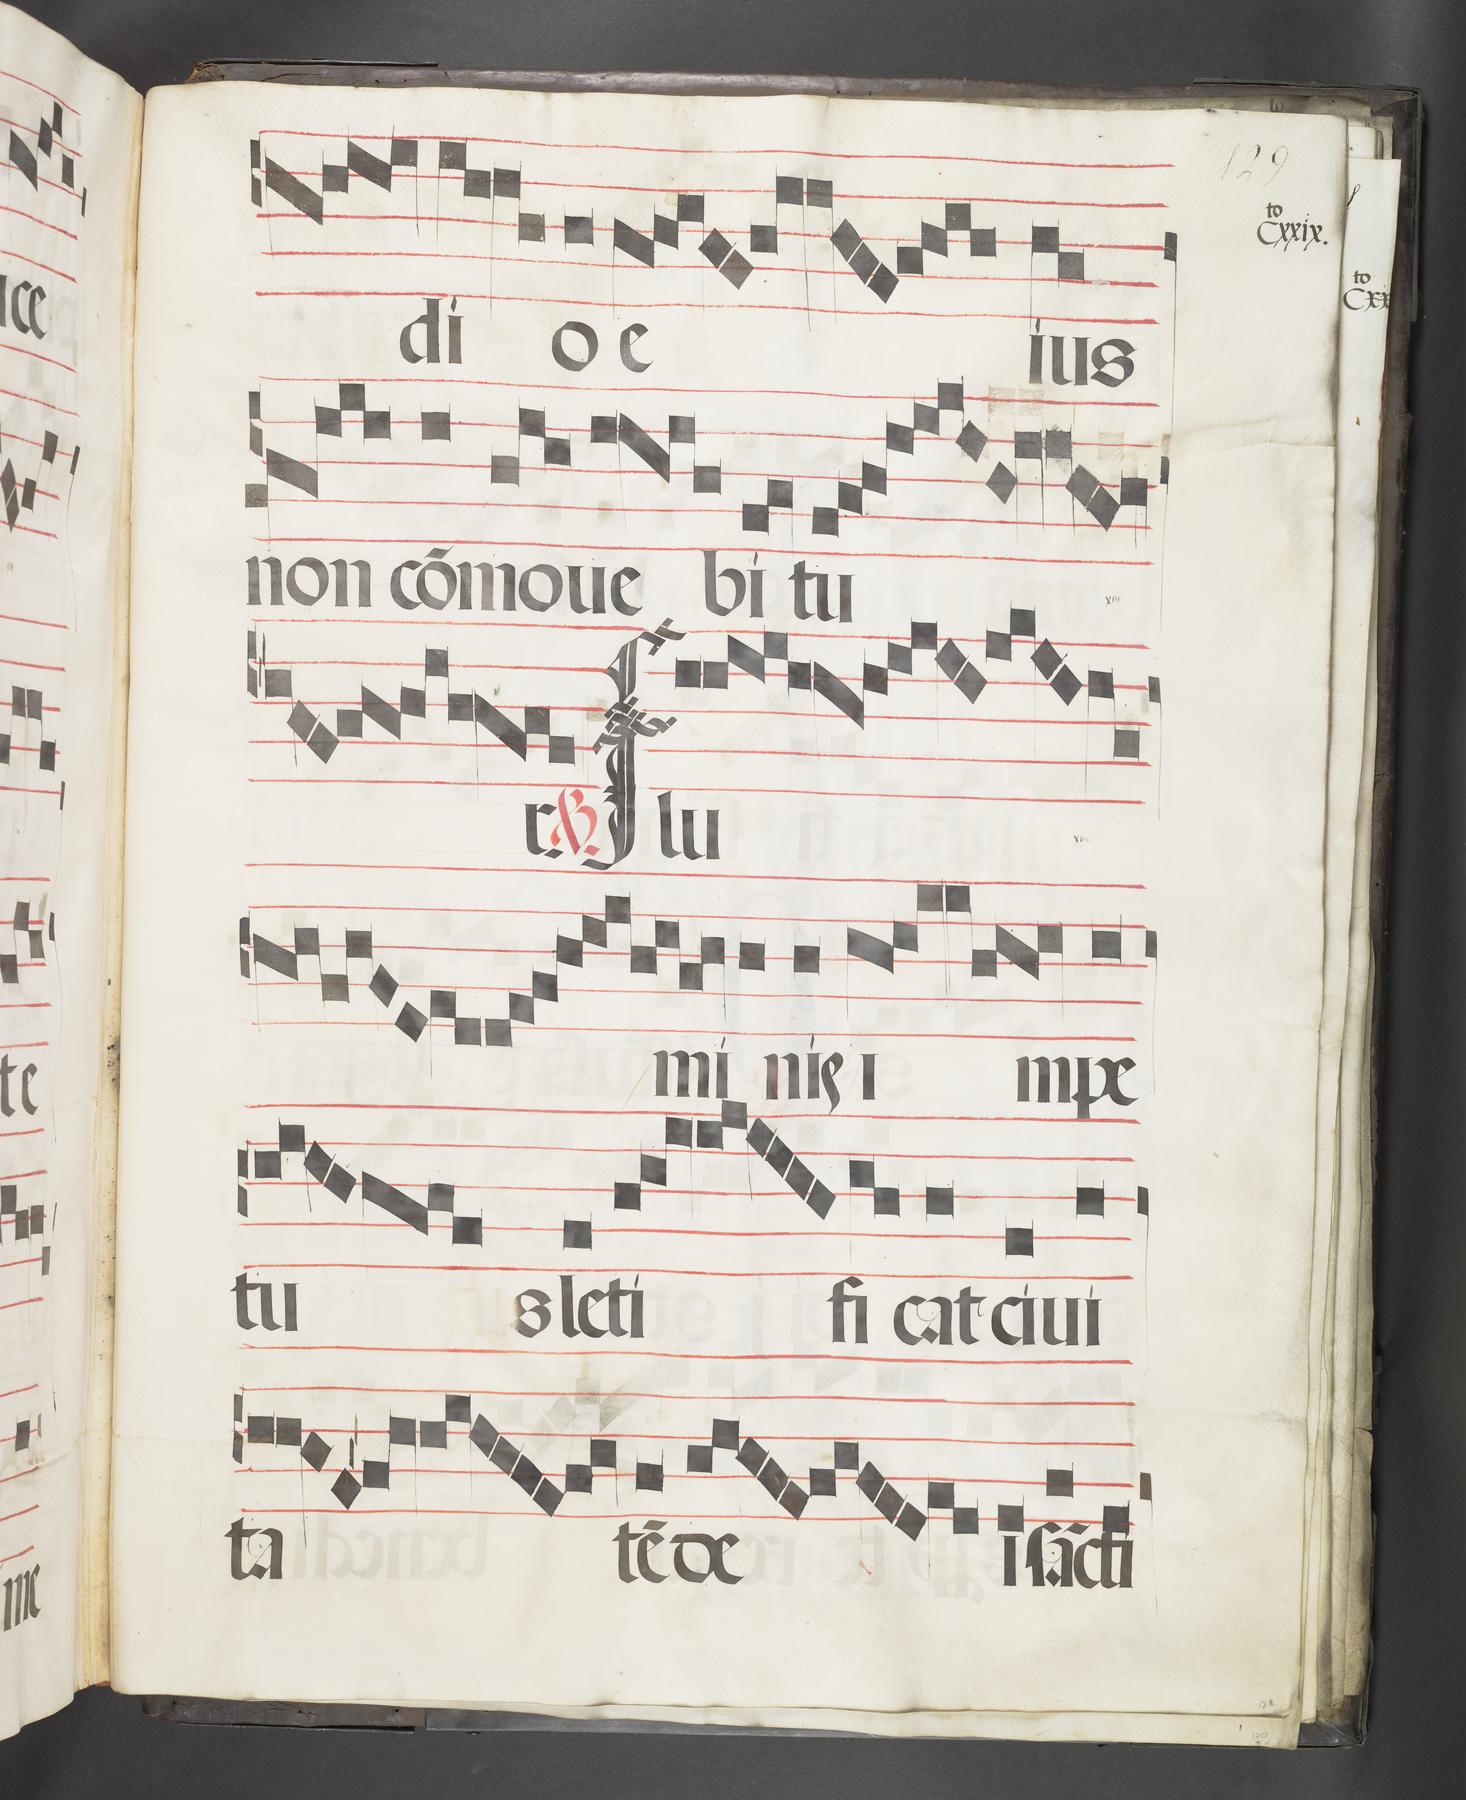 129
to
Cxxix.
di o e ius
non cõmoue bi tu
r. ℟. F lu
mi nis i mpe
tu s leti fi cat ciui
ta tē de i sācti
ice
te
me
to
Cxx